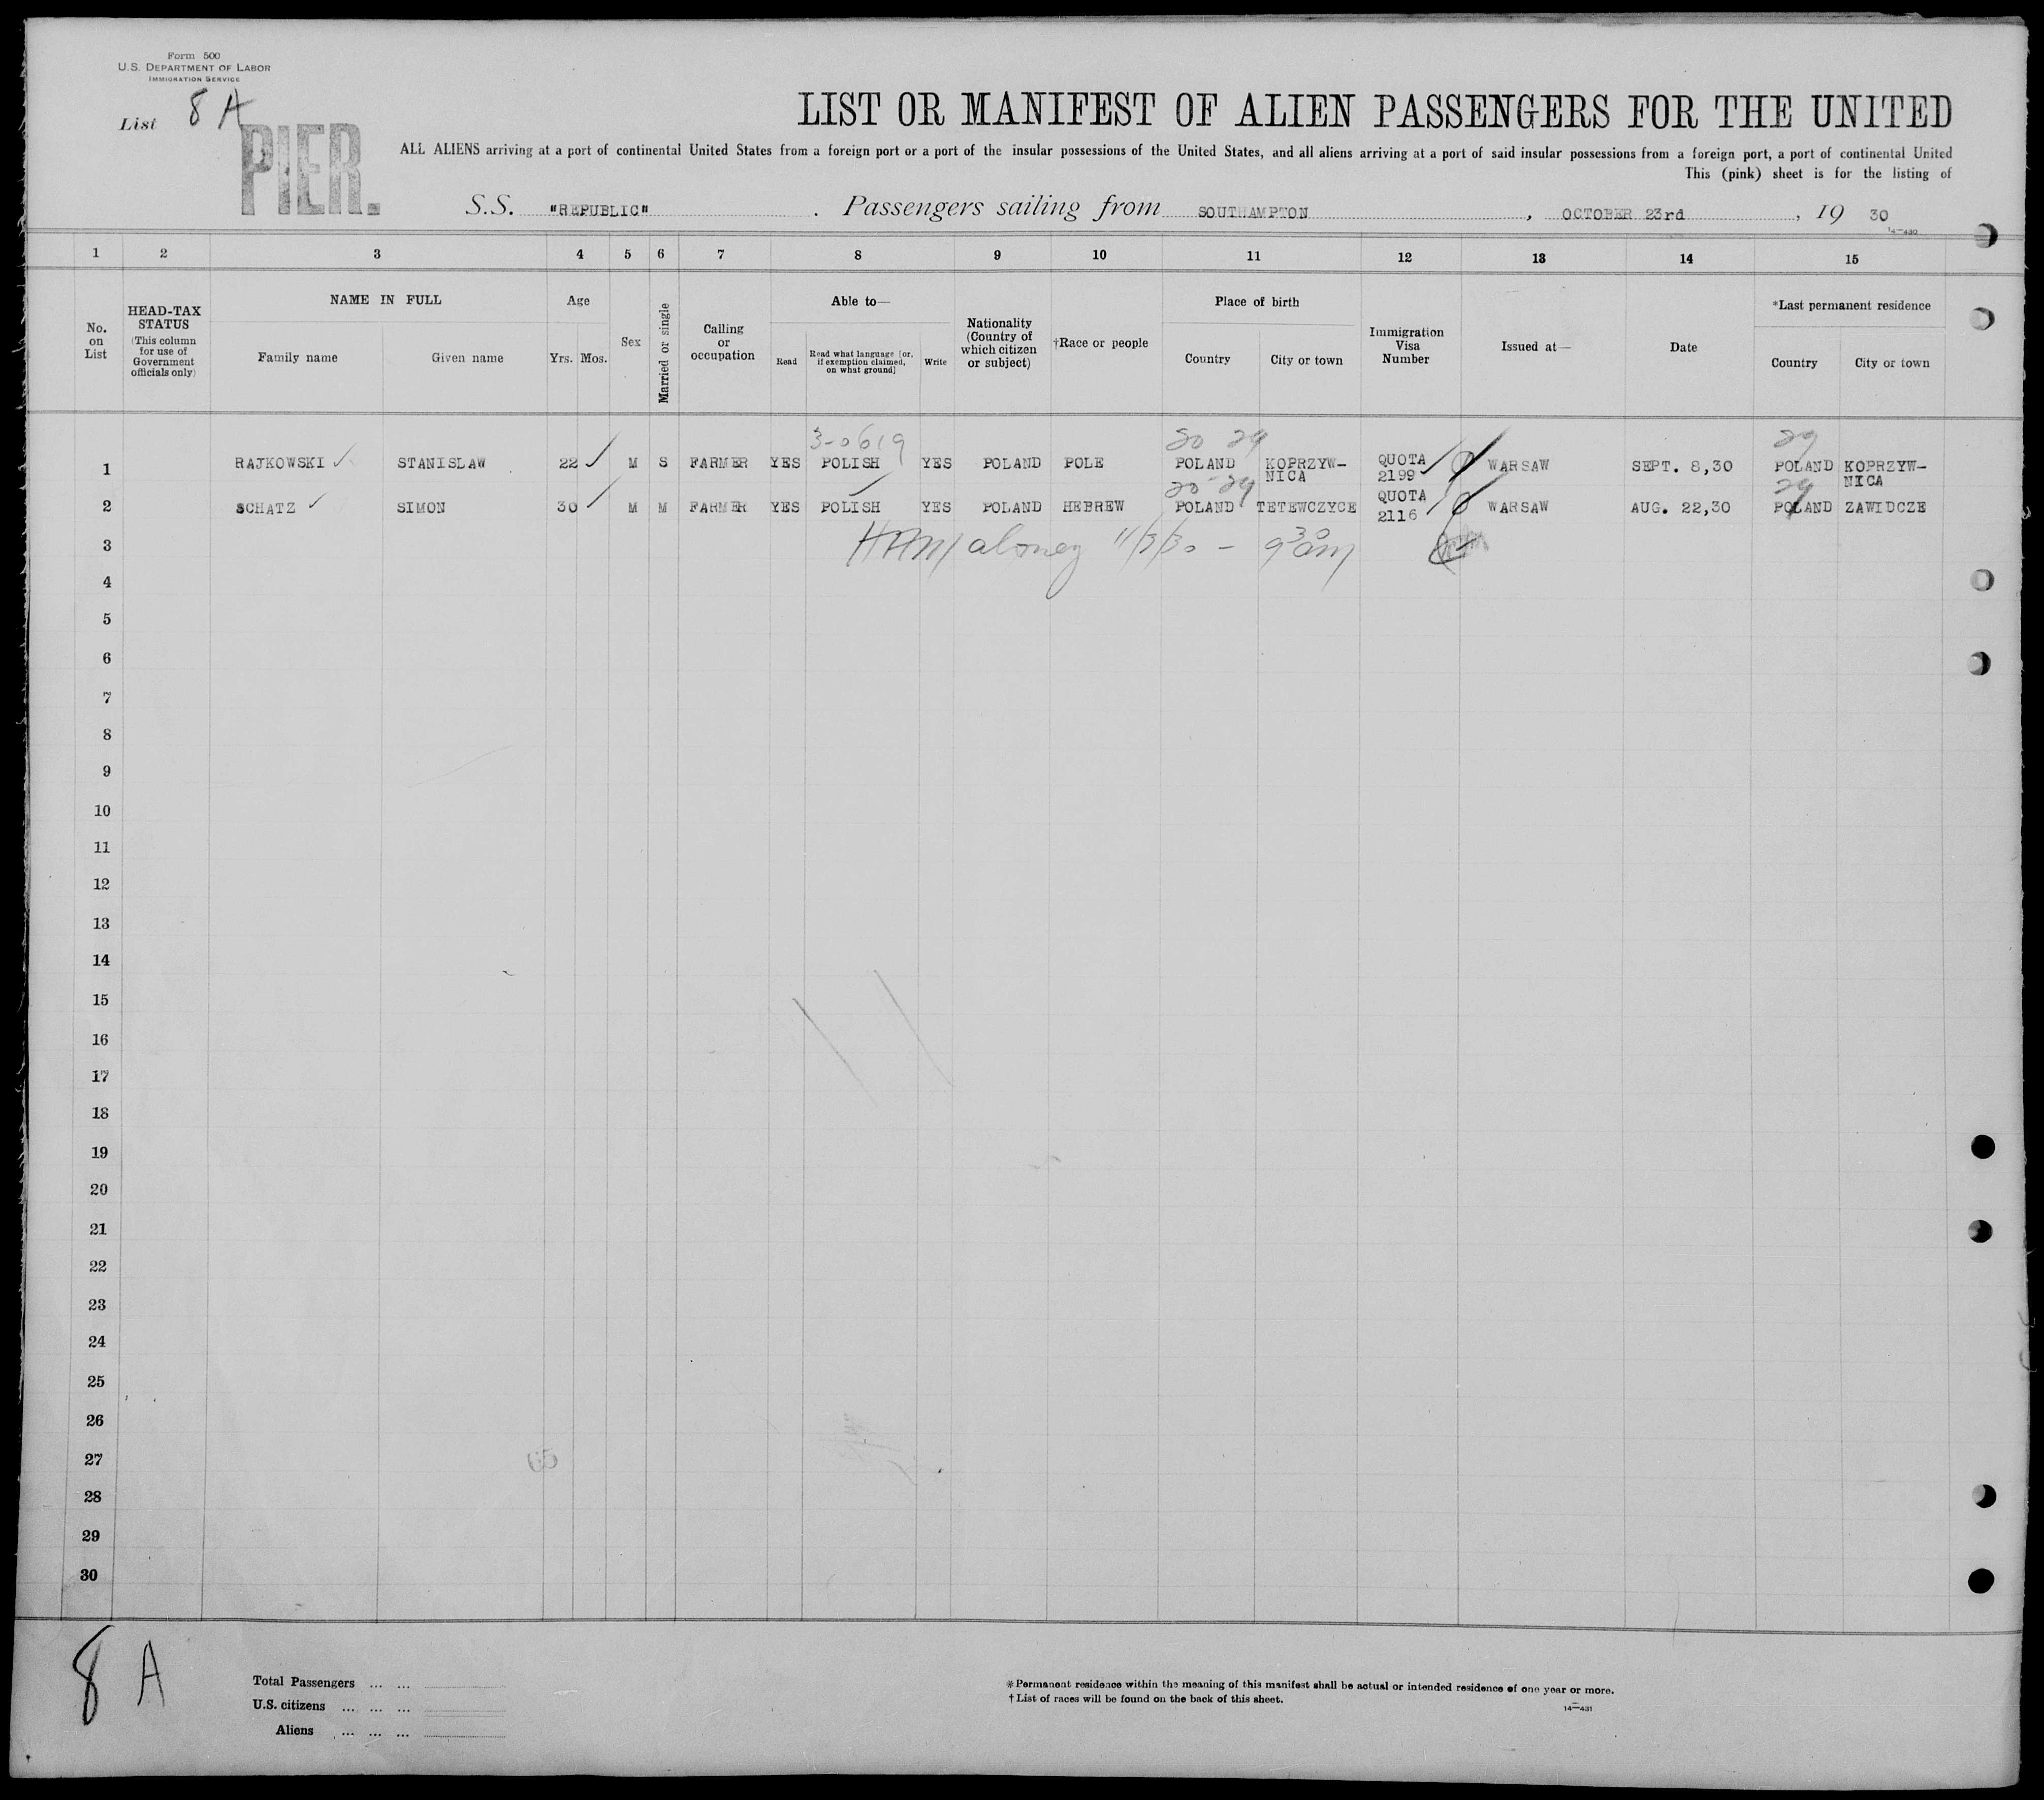 Form 500
U.S. DEPARTMENT OF LABOR
IMMIGRATION SERVICE
List 8 A
PIER.
LIST OR MANIFEST OF ALIEN PASSENGERS FOR THE UNITED
ALL ALIENS arriving at a port of continental United States from a foreign port or a port of the insular possessions of the United States, and all aliens arriving at a port of said insular possessions from a foreign port, a port of continental United
This (pink) sheet is for the listing of
S.S. "REPUBLIC" . Passengers sailing from SOUTHAMPTON , OCTOBER 23rd , 19 30
14—430
1 2 3 4 5 6 7 8 9 10 11 12 13 14 15
No. on List
HEAD-TAX STATUS
(This column for use of Government officials only)
NAME IN FULL
Family name Given name
Age
Yrs. Mos.
Sex
Married or single
Calling or occupation
Able to—
Read
Read what language [or, if exemption claimed, on what ground]
Write
Nationality (Country of which citizen or subject)
†Race or people
Place of birth
Country City or town
Immigration Visa Number
Issued at—
Date
*Last permanent residence
Country City or town
20 29 29
1 RAJKOWSKI STANISLAW 22 M S FARMER YES POLISH YES POLAND POLE POLAND KOPRZYW-NICA QUOTA 2199 WARSAW SEPT. 8,30 POLAND KOPRZYW-NICA
20-29 29
2 SCHATZ SIMON 30 M M FARMER YES POLISH YES POLAND HEBREW POLAND TETEWCZYCE QUOTA 2116 WARSAW AUG. 22,30 POLAND ZAWIDCZE
3 11/3/30 - 9 30 am
4
5
6
7
8
9
10
11
12
13
14
15
16
17
18
19
20
21
22
23
24
25
26
27
28
29
30
65
8 A
Total Passengers ... ...
U.S. citizens ... ... ...
Aliens ... ... ...
*Permanent residence within the meaning of this manifest shall be actual or intended residence of one year or more.
†List of races will be found on the back of this sheet.
14—431